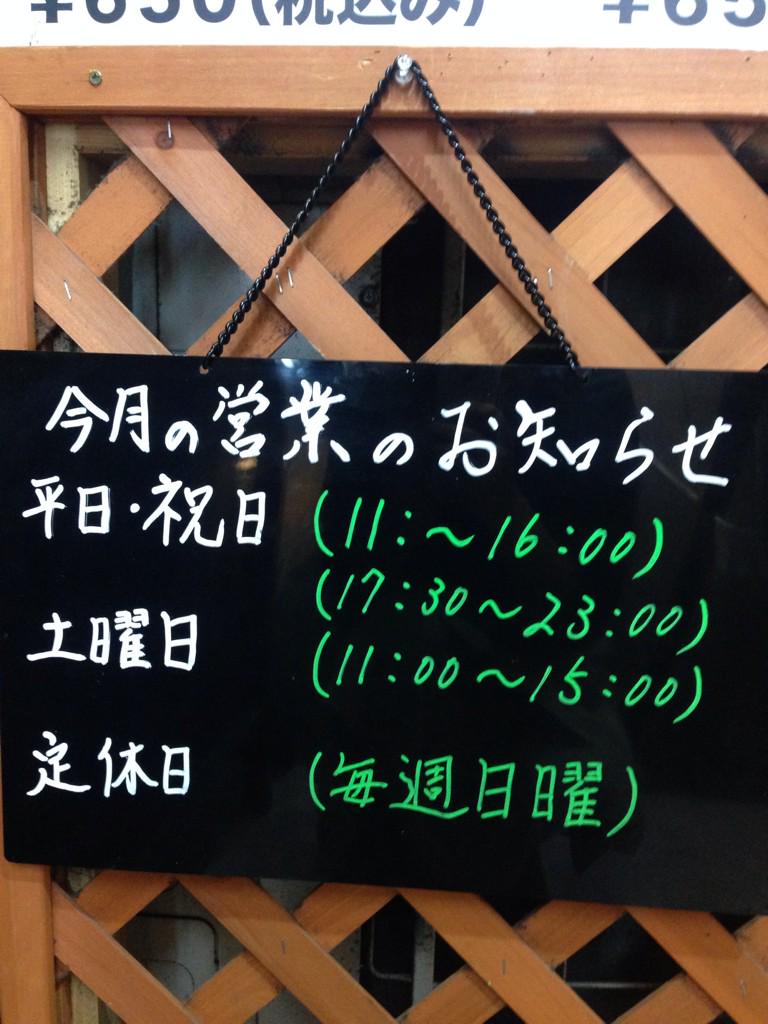 ¥650(税込み) ¥65
今月の営業のお知らせ
平日・祝日 (11:～16:00)
(17:30～23:00)
土曜日 (11:00～15:00)
定休日 (毎週日曜)